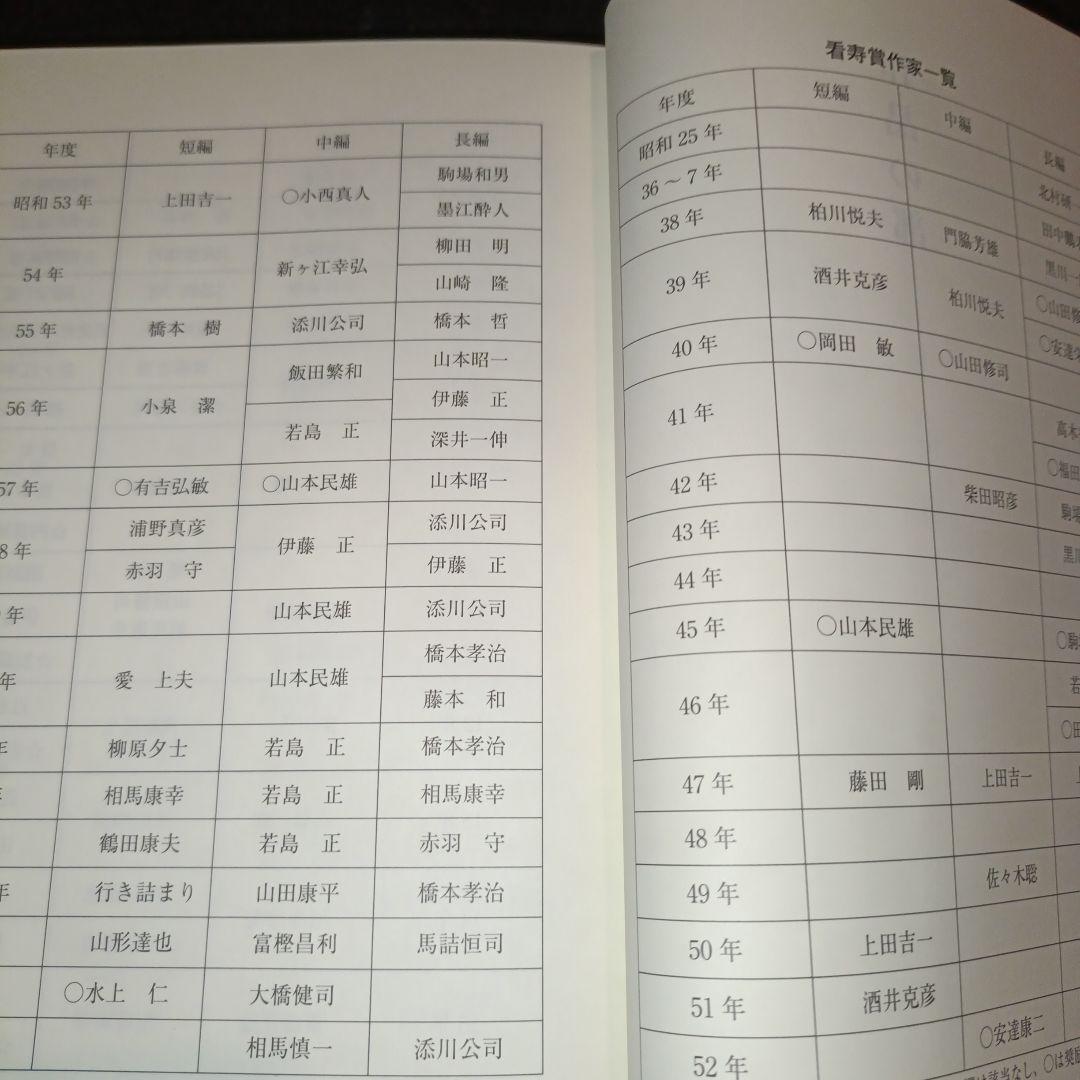 年度 短編 中編 長編
昭和53年 上田吉一 〇小西真人 駒場和男
墨江酔人
54年 新ヶ江幸弘 柳田 明
山崎 隆
55年 橋本 樹 添川公司 橋本 哲
56年 小泉 潔 飯田繁和 山本昭一
若島 正 伊藤 正
深井一伸
57年 〇有吉弘敏 〇山本民雄 山本昭一
8年 浦野真彦 伊藤 正 添川公司
赤羽 守 伊藤 正
年 山本民雄 添川公司
年 愛 上夫 山本民雄 橋本孝治
藤本 和
年 柳原夕士 若島 正 橋本孝治
相馬康幸 若島 正 相馬康幸
鶴田康夫 若島 正 赤羽 守
年 行き詰まり 山田康平 橋本孝治
山形達也 富樫昌利 馬詰恒司
〇水上 仁 大橋健司
相馬慎一 添川公司
看寿賞作家一覧
年度 短編 中編 長編
昭和25年 北村研一
36〜7年 田中鵬
38年 柏川悦夫 門脇芳雄 黒川一
39年 酒井克彦 柏川悦夫 〇山田修
〇安達
40年 〇岡田 敏 〇山田修司
41年 高木
〇福田
42年 柴田昭彦 駒場
43年 黒川
44年
45年 〇山本民雄 〇駒
46年 若
〇田
47年 藤田 剛 上田吉一 上
48年
49年 佐々木聡
50年 上田吉一
51年 酒井克彦
52年 〇安達康二
は該当なし、〇は奨励